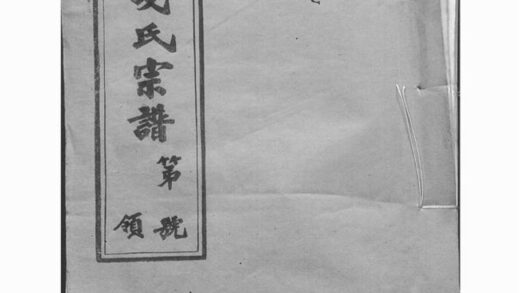 氏宗譜
第
號
領